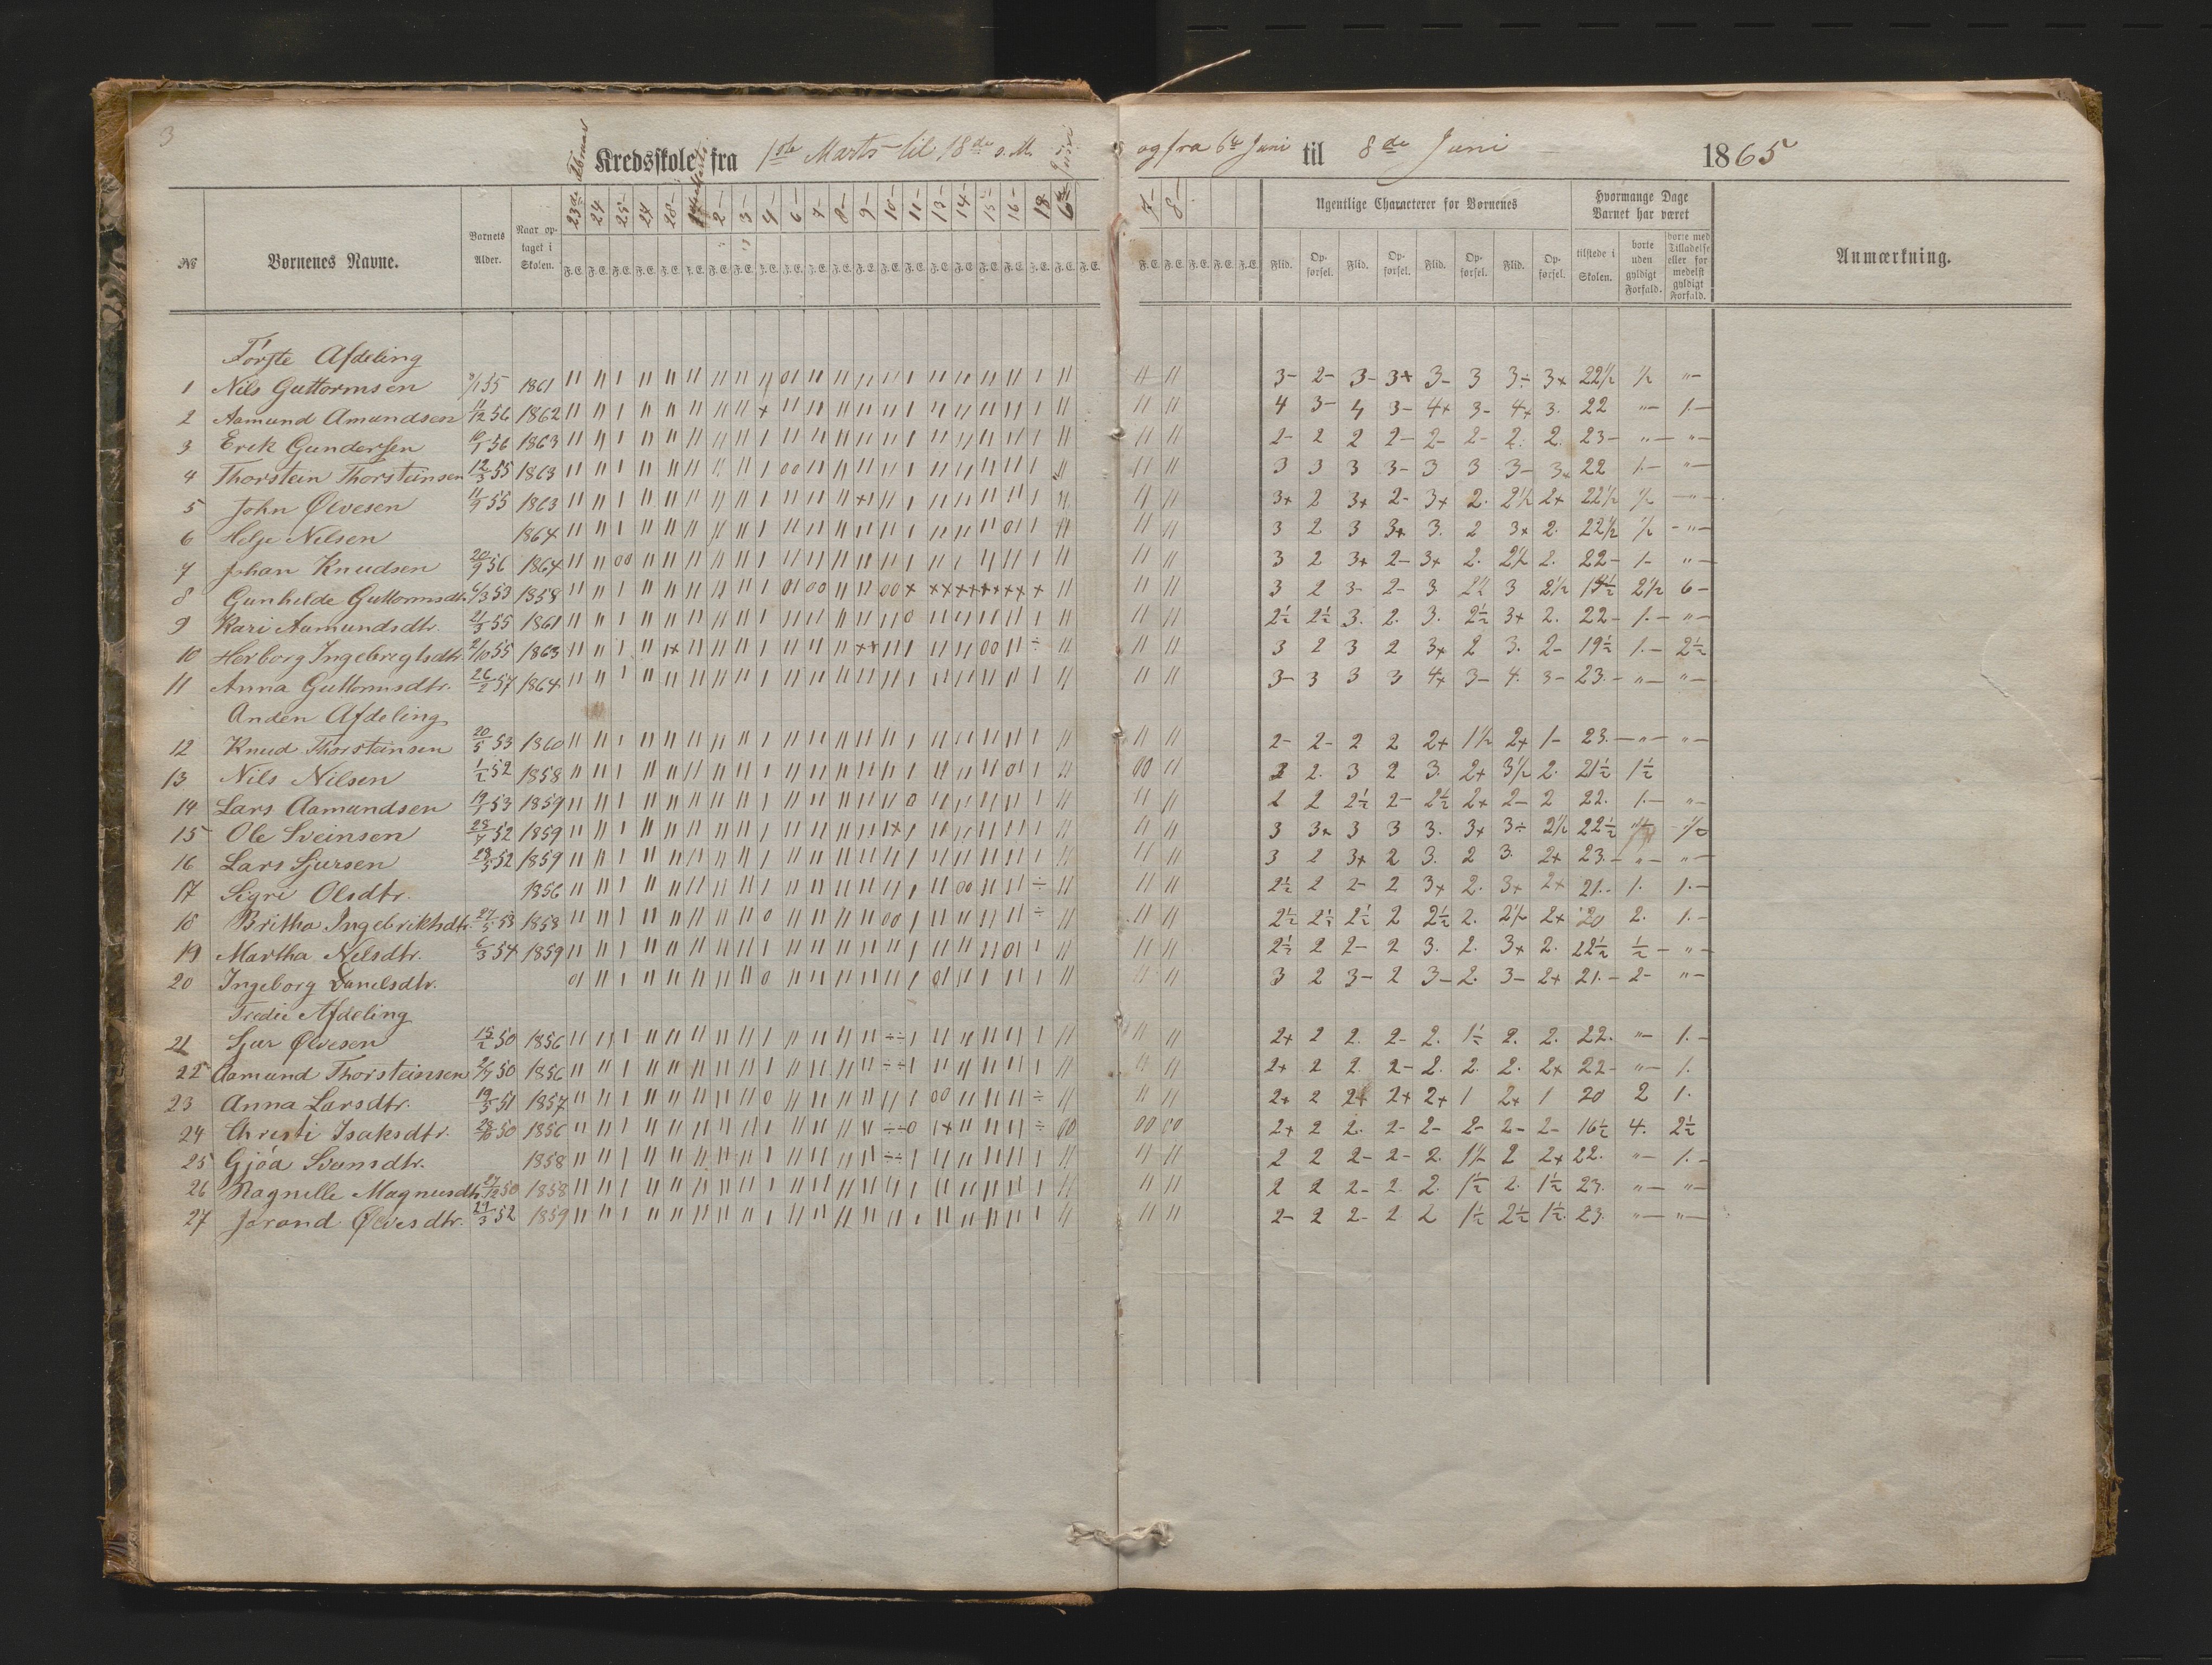 3
Kredsskole fra 1ste Marts til 18de s. M. og fra 6te Juni til 8de Juni 1865
23de Februar 24 25 27 28 1ste Marts 2 3 4 6 7 8 9 10 11 13 14 15 16 18 6te Juni 7 8
№ Børnenes Navne. Barnets Alder. Naar optaget i Skolen. F. E. Ugentlige Characterer for Børnenes Hvormange Dage Barnet har været Anmærkning.
Flid. Opførsel. Flid. Opførsel. Flid. Opførsel. Flid. Opførsel. tilstede i Skolen. borte uden gyldigt Forfald. borte med Tilladelse eller for medelst gyldigt Forfald.
Første Afdeling
1 Nils Guttormsen 1861 3- 2- 3- 3+ 3- 3 3÷ 3+ 22½ ½ "-
2 Aamund Amundsen 11/12 56 1862 4 3- 4 3- 4+ 3- 4+ 3. 22 "- 1.-
3 Erik Gundersen 56 1863 2- 2 2 2- 2- 2- 2. 2. 23- "- "-
4 Thorstein Thorsteinsen 12/3 55 1863 3 3 3 3- 3 3 3- 3+ 22 1.- "-
5 John Ølvesen 11/9 55 1863 3+ 2 3+ 2- 3+ 2. 2½ 2+ 22½ ½ "-
6 Helje Nilsen 1864 3 2 3 3+ 3. 2 3+ 2. 22½ ½ "-
7 Johan Knudsen 20/9 56 1864 3 2 3+ 2- 3+ 2. 2½ 2. 22- 1- "-
8 Gunhilde Guttormsdtr. 6/3 53 1858 3 2 3- 2- 3. 2½ 3 2½ 2½ 6-
9 Kari Aamundsdtr. 2/3 55 1861 2½ 2½ 3. 2. 3. 2½ 3+ 2. 22- 1.- "-
10 Herborg Ingebrigtsdtr. 2/10 55 1863 3 2 3 2 3+ 2 3. 2- 19½ 1.- 2½
11 Anna Guttormsdtr. 26/2 57 1864 3- 3 3 3 4+ 3- 4. 3- 23.- "- "-
Anden Afdeling
12 Knud Thorsteinsen 20/5 53 1860 2- 2- 2 2 2+ 1½ 2+ 1- 23.- "- "-
13 Nils Nilsen 1/2 52 1858 2. 3 2 3. 2+ 3½ 2. 21½ 1½
14 Lars Aamundsen 19/1 53 1859 2 2 2½ 2- 2½ 2+ 2- 2 22. 1.- "-
15 Ole Sveinsen 28/7 52 1859 3 3+ 3 3 3. 3+ 3÷ 2½ 22½ ½
16 Lars Sjursen 52 1859 3 2 3+ 2 3. 2 3. 2+ 23.- "- "-
17 Sigri Olsdtr. 1856 2½ 2 2- 2 3+ 2. 3+ 2+ 21.- 1. 1.-
18 Britha Ingebriktsdtr. 27/5 53 1858 2½ 2½ 2½ 2 2½ 2. 2½ 2+ 20 2. 1.-
19 Martha Nilsdtr. 6/3 54 1859 2½ 2 2- 2 3. 2. 3+ 2. 22½ ½ - "-
20 Ingeborg Danielsdtr. 3 2 3- 2 3- 2. 3- 2+ 21.- 2- "-
Tredie Afdeling
21 Sjur Ølvesen 15/2 50 1856 2+ 2 2. 2- 2. 1½ 2. 2. 22. "- 1.-
22 Aamund Thorsteinsen 2/7 50 1856 2+ 2 2. 2- 2. 2. 2. 2+ 22- "- 1.
23 Anna Larsdtr. 19/5 51 1857 2+ 2 2+ 2+ 2+ 1 2+ 1 20 2 1.
24 Christi Isaksdtr. 28/10 50 1856 2+ 2 2. 2- 2- 2- 2- 2- 16½ 4. 2½
25 Gjøa Svensdtr. 1858 2 2 2- 2- 2. 1½ 2 2+ 22. "- 1.-
26 Ragnille Magnusdtr. 27/12 50 1858 2 2 2- 2 2. 1½ 2. 1½ 23. "- "-
27 Jorand Ølvesdtr. 21/3 52 1859 2- 2 2- 2 2 1½ 2½ 1½ 23. "- "-